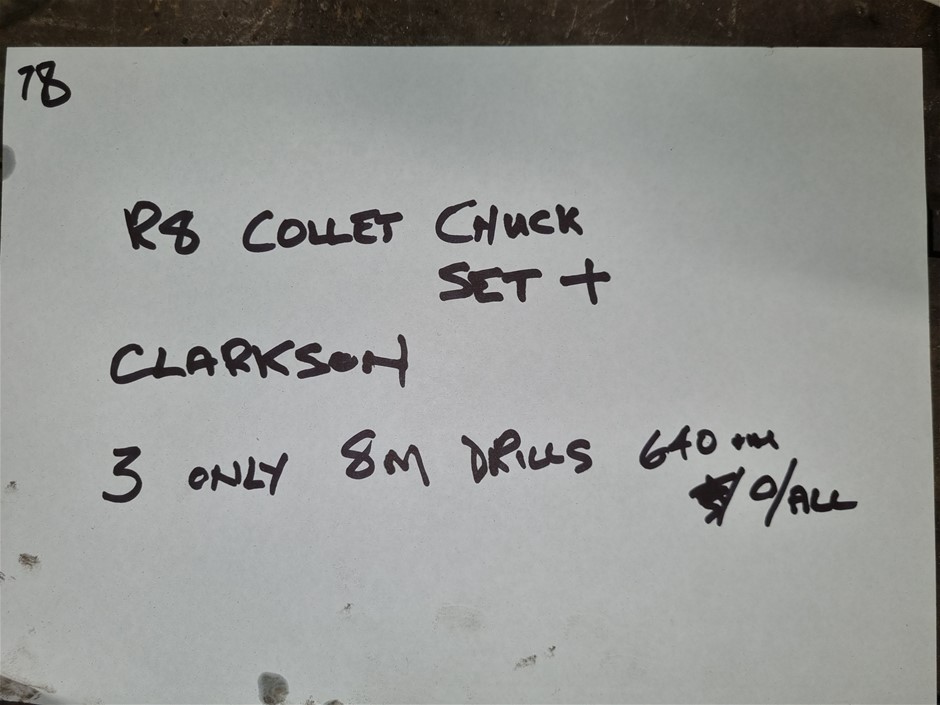 78
R8 COLLET CHUCK
SET +
CLARKSON
3 ONLY 8M DRILLS 640 mm
O/ALL